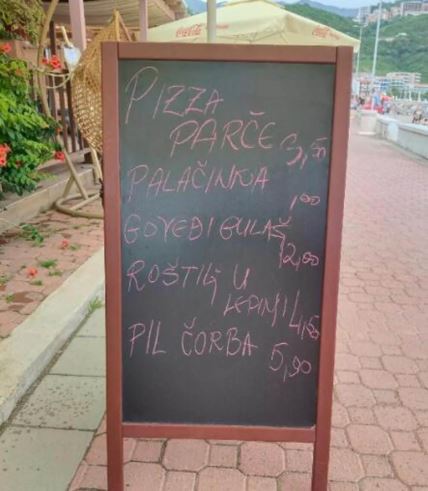 Coca-Cola
Coca-Cola
PIZZA
PARČE 3,50
PALAČINKA
1,00
GOVEĐI GULAŠ
12,00
ROŠTILJ U
LEPINJI 4,50
PIL ČORBA 5,90